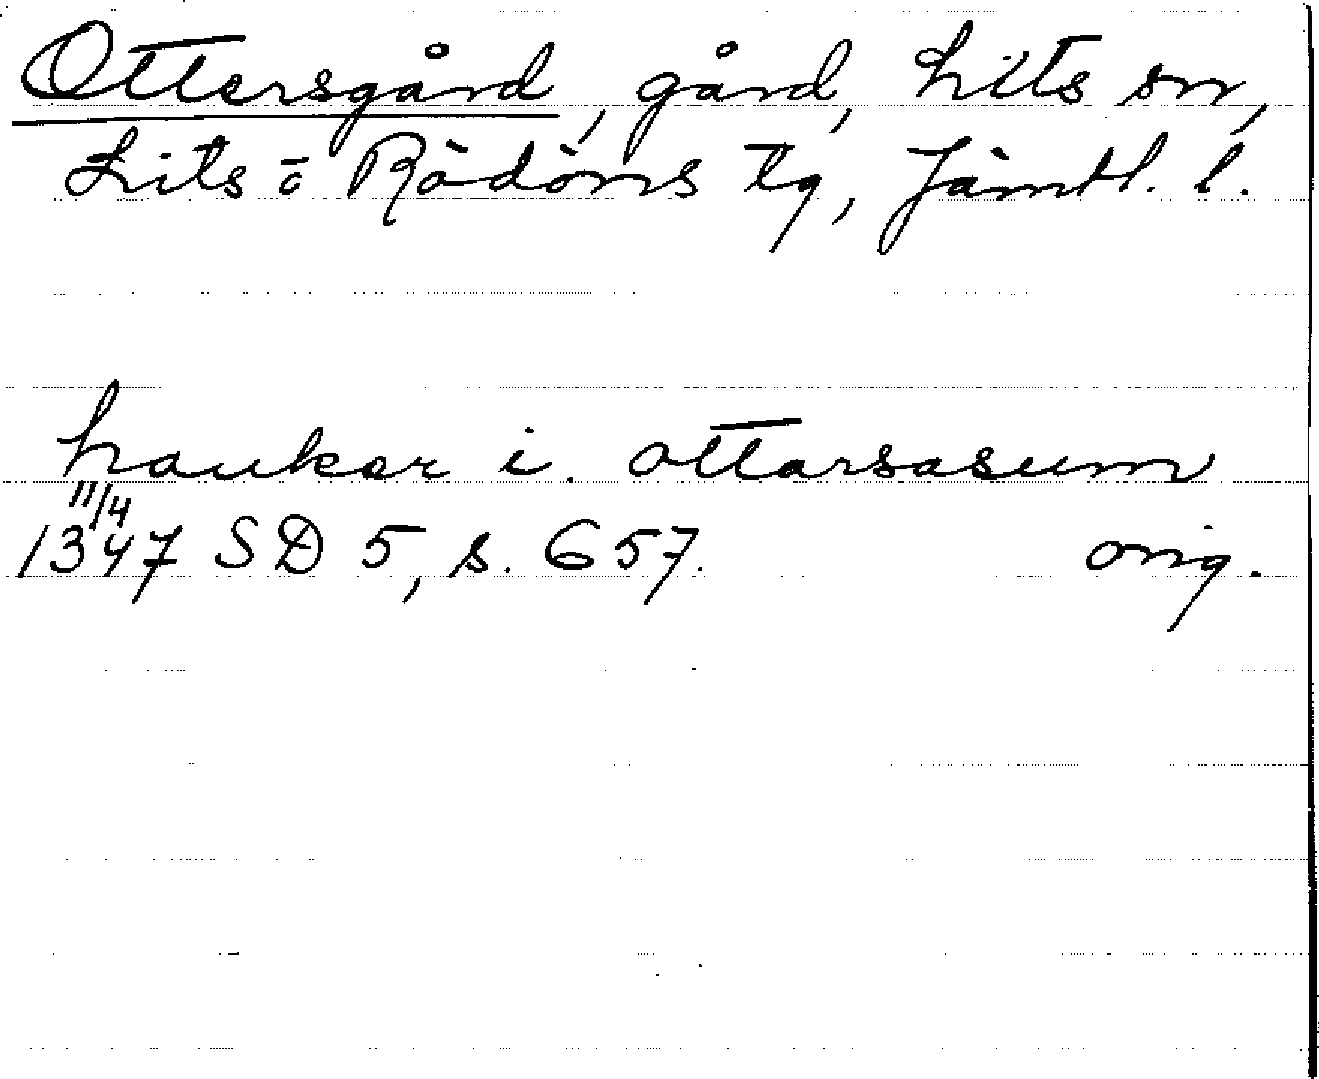 Ottersgård, gård, Lits sn,
Lits o Rödöns tg, Jämtl. l.
haukar i. ottarsasum
11/4
1347 SD 5, s. 657. orig.